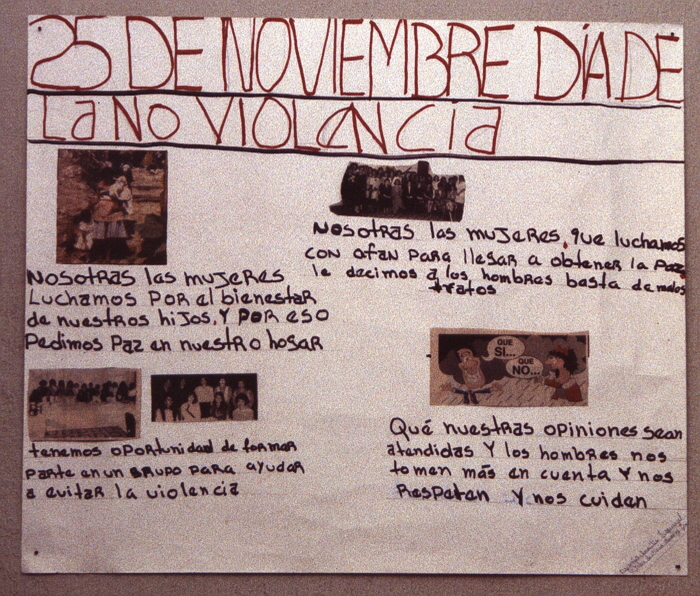 25 DE NOVIEMBRE DÍA DE
La NO VIOLENCIa
NOSOTRAS las mujeres
Luchamos POR el bienestar
de nuestros hijos, Y POR eso
Pedimos Paz en nuestro hogar
NOSOTRAS las mujeres, que luchamos
CON afan PARa llegar a obtener la Paz
le decimos a los hombres basta de malos
tratos
QUE
SI...
QUE
NO...
tenemos oportunidad de formar
parte en un GRUPO PARA ayudar
a evitar la violencia
Qué nuestras opiniones sean
atendidas Y los hombres nos
tomen más en cuenta Y nos
Respeten Y nos cuiden